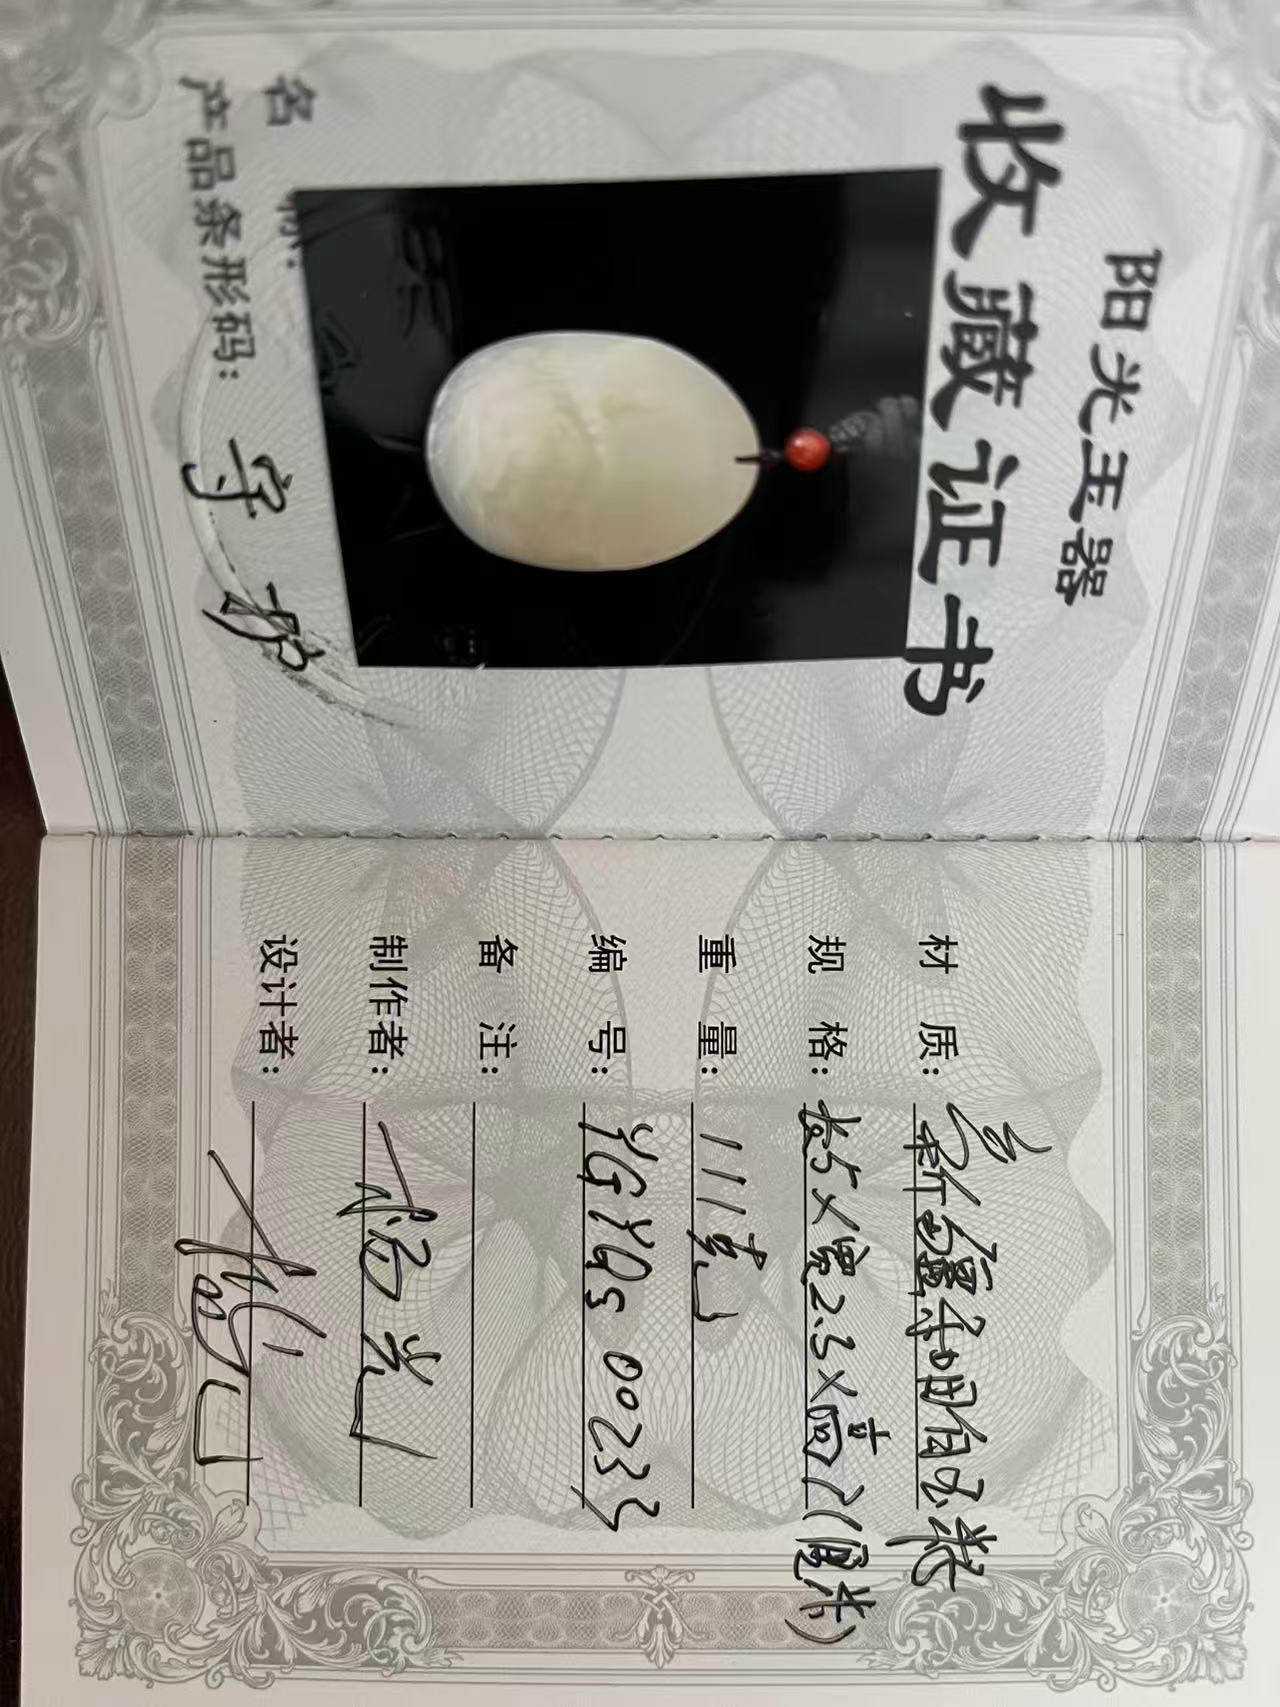 阳光玉器
收藏证书
名 称：
产品条形码： 守护
材 质： 新疆和田白玉籽
规 格： 长5×宽2.3×高2(厘米)
重 量： 111克
编 号： YGYQs 00233
备 注：
制作者： 杨光
设计者： 杨光